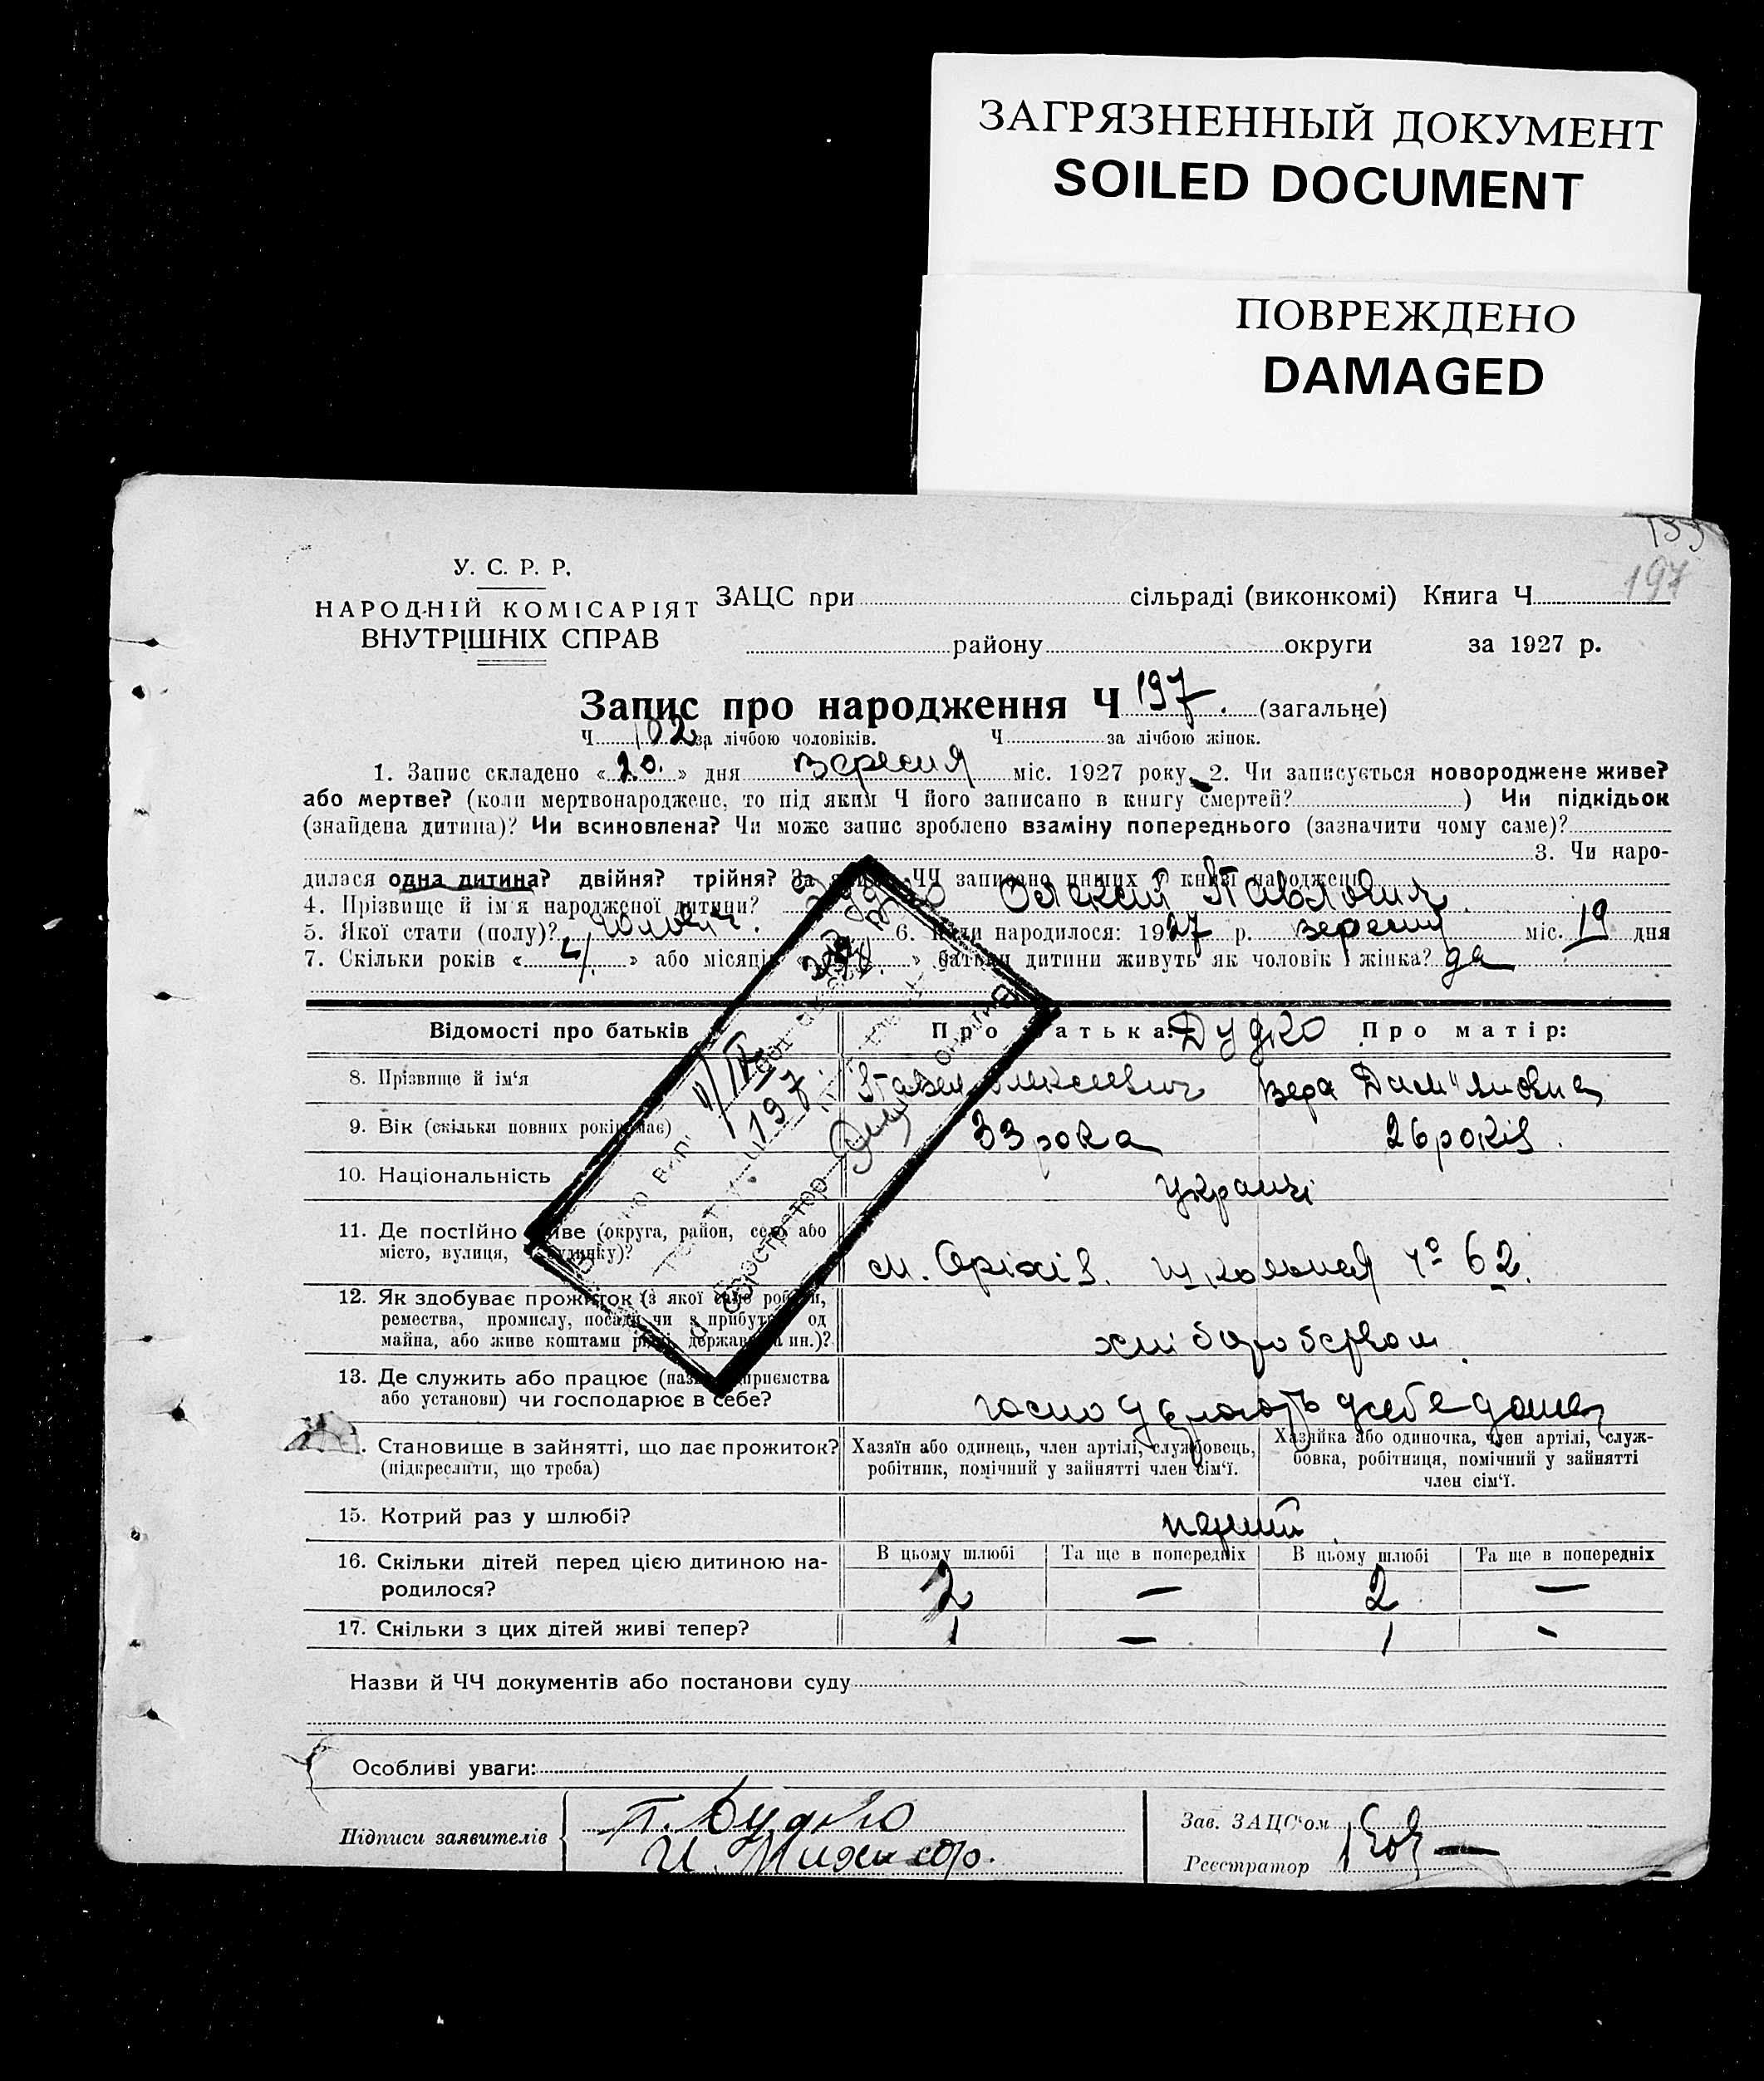 ЗАГРЯЗНЕННЫЙ ДОКУМЕНТ
SOILED DOCUMENT
ПОВРЕЖДЕНО
DAMAGED
197
У. С. Р. Р.
НАРОДНІЙ КОМІСАРІЯТ
ВНУТРІШНІХ СПРАВ
ЗАЦС при сільраді (виконкомі) Книга Ч.
району округи за 1927 р.
Запис про народження Ч 197. (загальне)
Ч. 102 за лічбою чоловіків. Ч. за лічбою жінок.
1. Запис складено «20.» дня вересня міс. 1927 року. 2. Чи записується новороджене живе?
або мертве? (коли мертвонароджене, то під яким Ч його записано в книгу смертей? ) Чи підкідьок
(знайдена дитина)? Чи всиновлена? Чи може запис зроблено взаміну попереднього (зазначити чому саме)?
3. Чи наро-
дилася одна дитина? двійня? трійня? За ЧЧ записано инших у книзі народжень
4. Прізвище й ім'я народженої дитини? Дудко Олексій Павлович.
5. Якої стати (полу)? чоловіч. 6. Коли народилося: 1927 р. вересня міс. 19 дня
7. Скільки років «4.» або місяців « » батьки дитини живуть як чоловік і жінка? да
Відомості про батьків Про батька: Дудко Про матір:
8. Прізвище й ім'я Павел Олексієвич Вера Дем"яновна
9. Вік (скільки повних років має) 33 рока 26 років.
10. Національність українці
11. Де постійно живе (округа, район, село або
місто, вулиця, будинку)? м. Оріхів. Школьная № 62.
12. Як здобуває прожиток (з якої саме роботи,
ремества, промислу, посади чи з прибутків од
майна, або живе коштами рідні, держави та ин.)? хліборобством.
13. Де служить або працює (назва підприємства
або установи) чи господарює в себе?
Становище в зайнятті, що дає прожиток? Хазяїн або одинець, член артілі, службовець, Хазяйка або одиночка, член артілі, служ-
(підкреслити, що треба) робітник, помічний у зайнятті член сім'ї. бовка, робітниця, помічний у зайнятті
член сім'ї.
15. Котрий раз у шлюбі? перший
16. Скільки дітей перед цією дитиною на- В цьому шлюбі Та ще в попередніх В цьому шлюбі Та ще в попередніх
родилося? 2 — 2 —
17. Скільки з цих дітей живі тепер? 1 — 1 -
Назви й ЧЧ документів або постанови суду
Особливі уваги:
Підписи заявителів П. Дудко
Зав. ЗАЦС'ом
Реєстратор